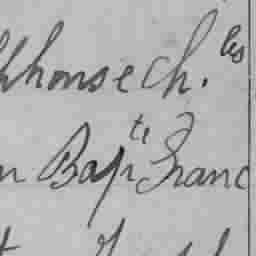 lphonse Ch.les
n Bapte Franc